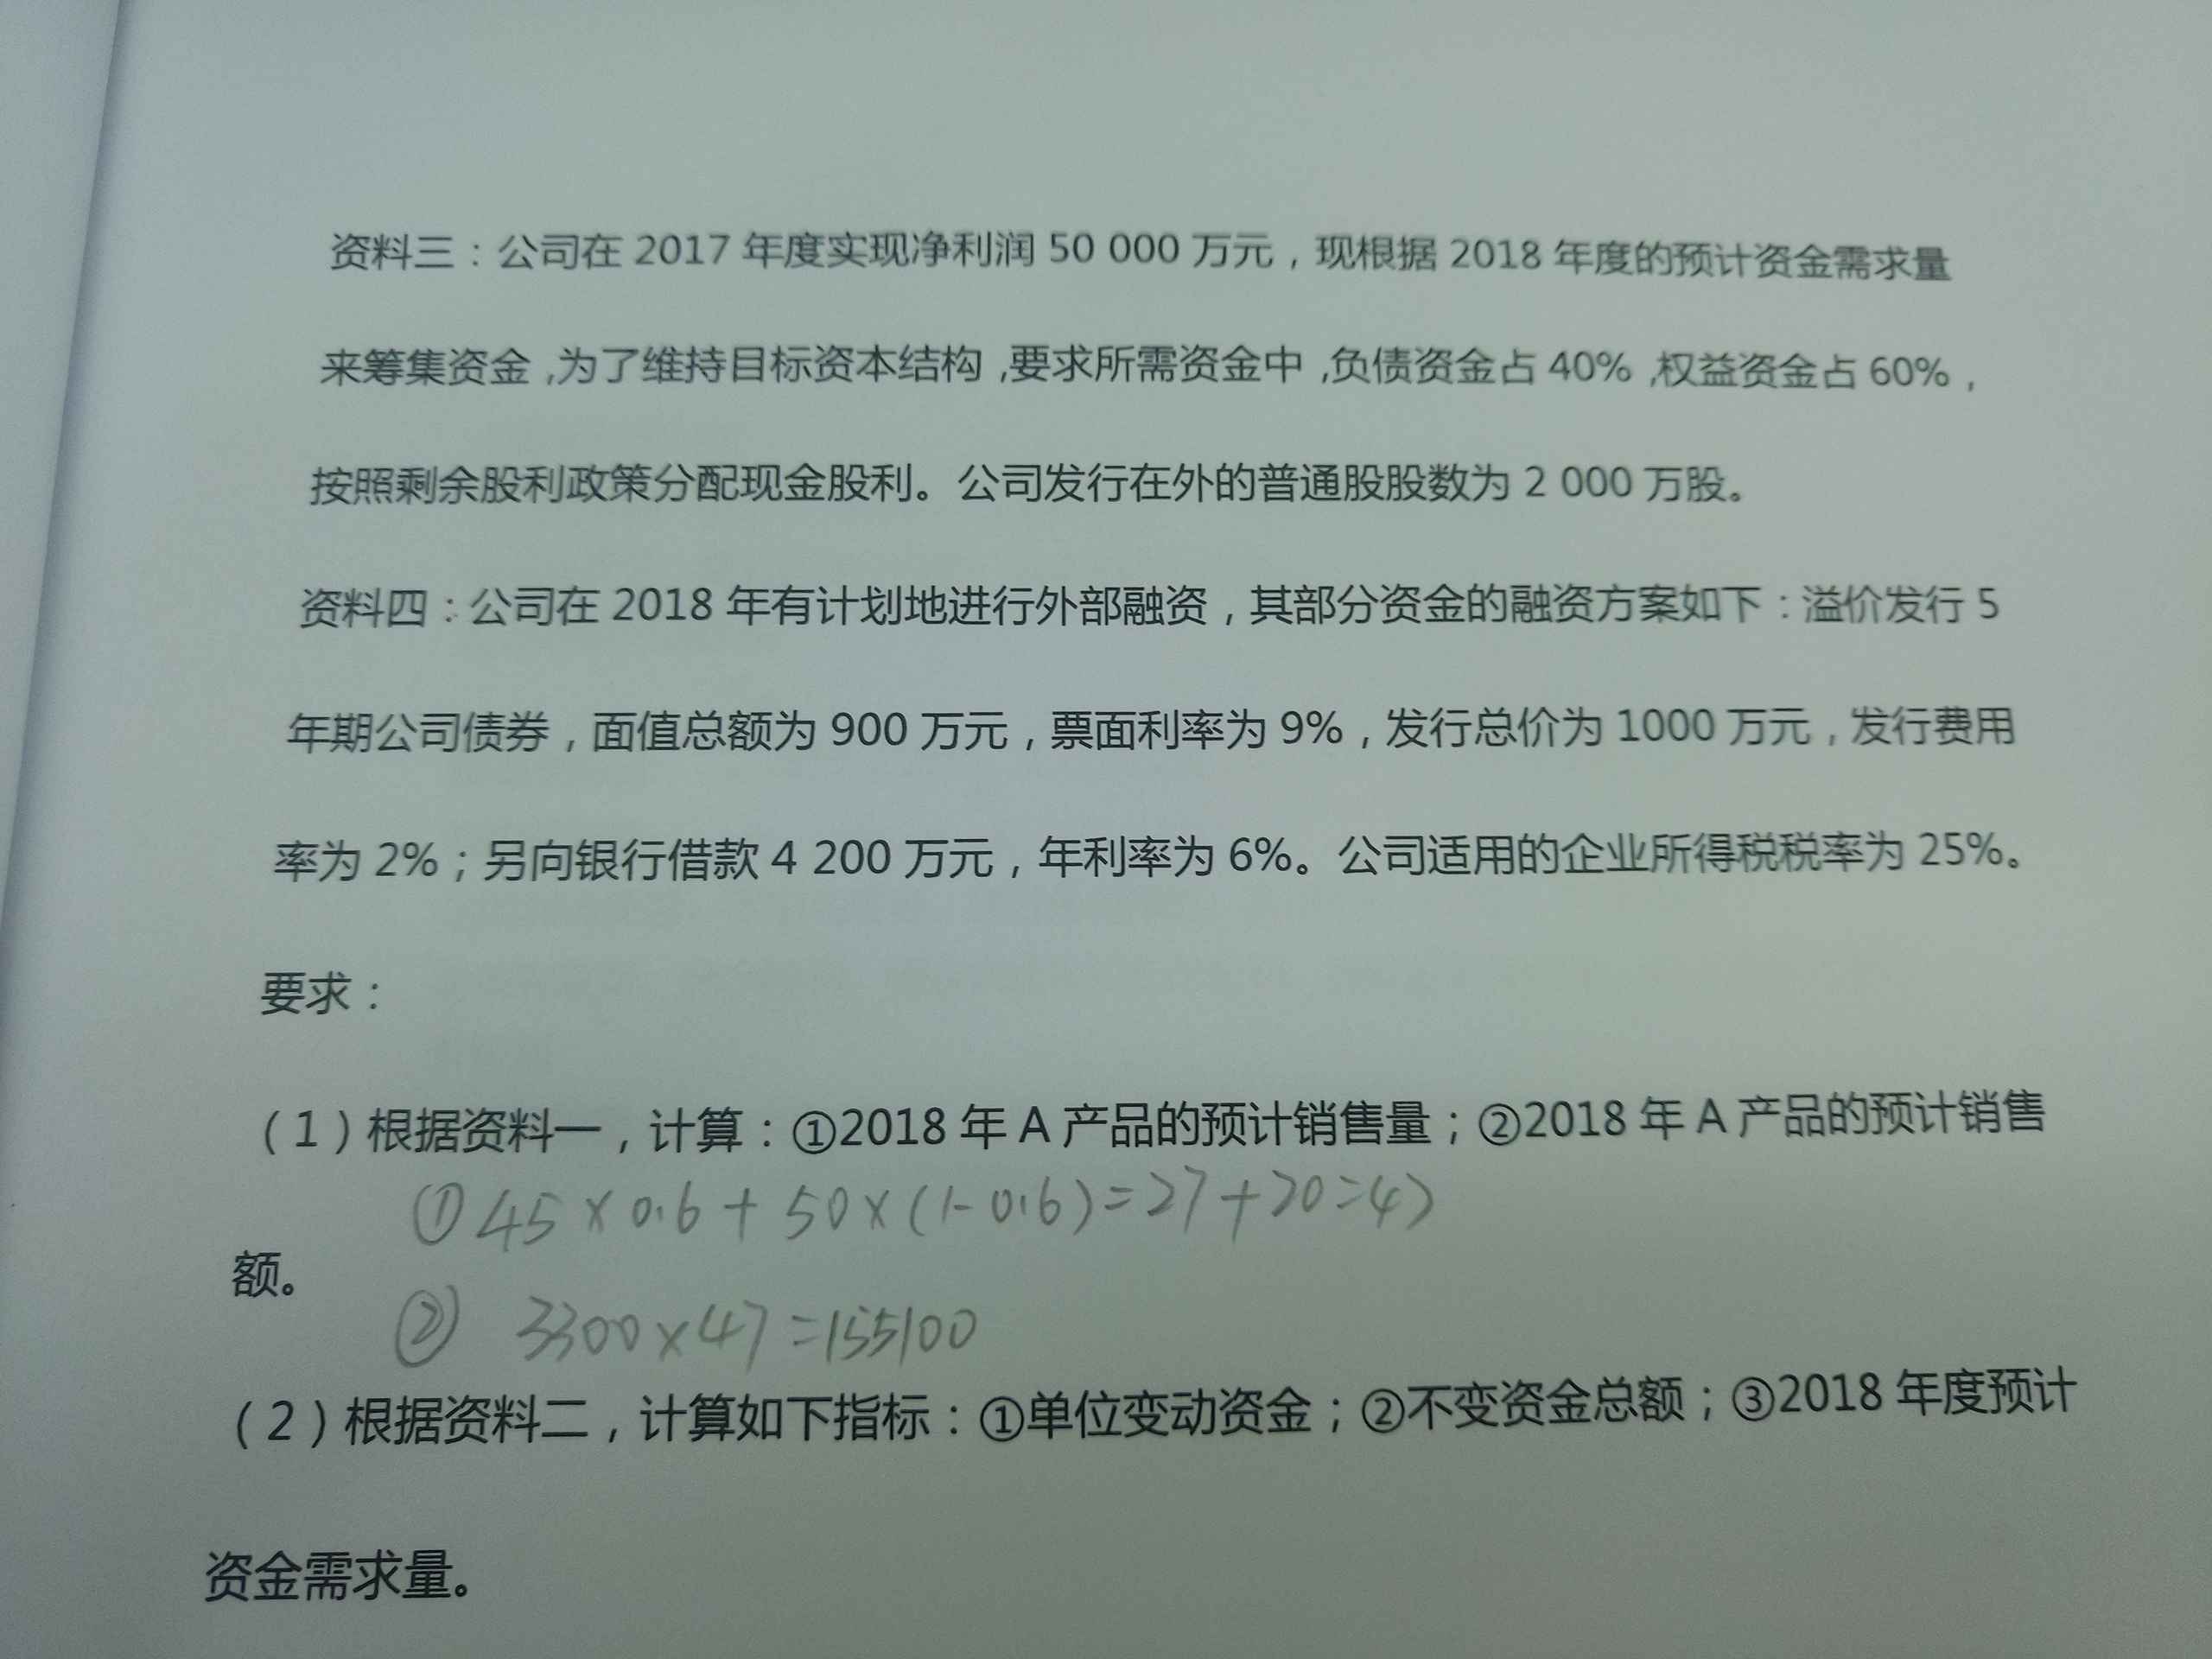 资料三：公司在 2017 年度实现净利润 50 000 万元，现根据 2018 年度的预计资金需求量
来筹集资金,为了维持目标资本结构,要求所需资金中,负债资金占 40%,权益资金占 60%，
按照剩余股利政策分配现金股利。公司发行在外的普通股股数为 2 000 万股。
资料四：公司在 2018 年有计划地进行外部融资，其部分资金的融资方案如下：溢价发行 5
年期公司债券，面值总额为 900 万元，票面利率为 9%，发行总价为 1000 万元，发行费用
率为 2%；另向银行借款 4 200 万元，年利率为 6%。公司适用的企业所得税税率为 25%。
要求：
（1）根据资料一，计算：①2018 年 A 产品的预计销售量；②2018 年 A 产品的预计销售
①45×0.6+50×(1-0.6)=27+20=47
额。
② 3300×47=155100
（2）根据资料二，计算如下指标：①单位变动资金；②不变资金总额；③2018 年度预计
资金需求量。